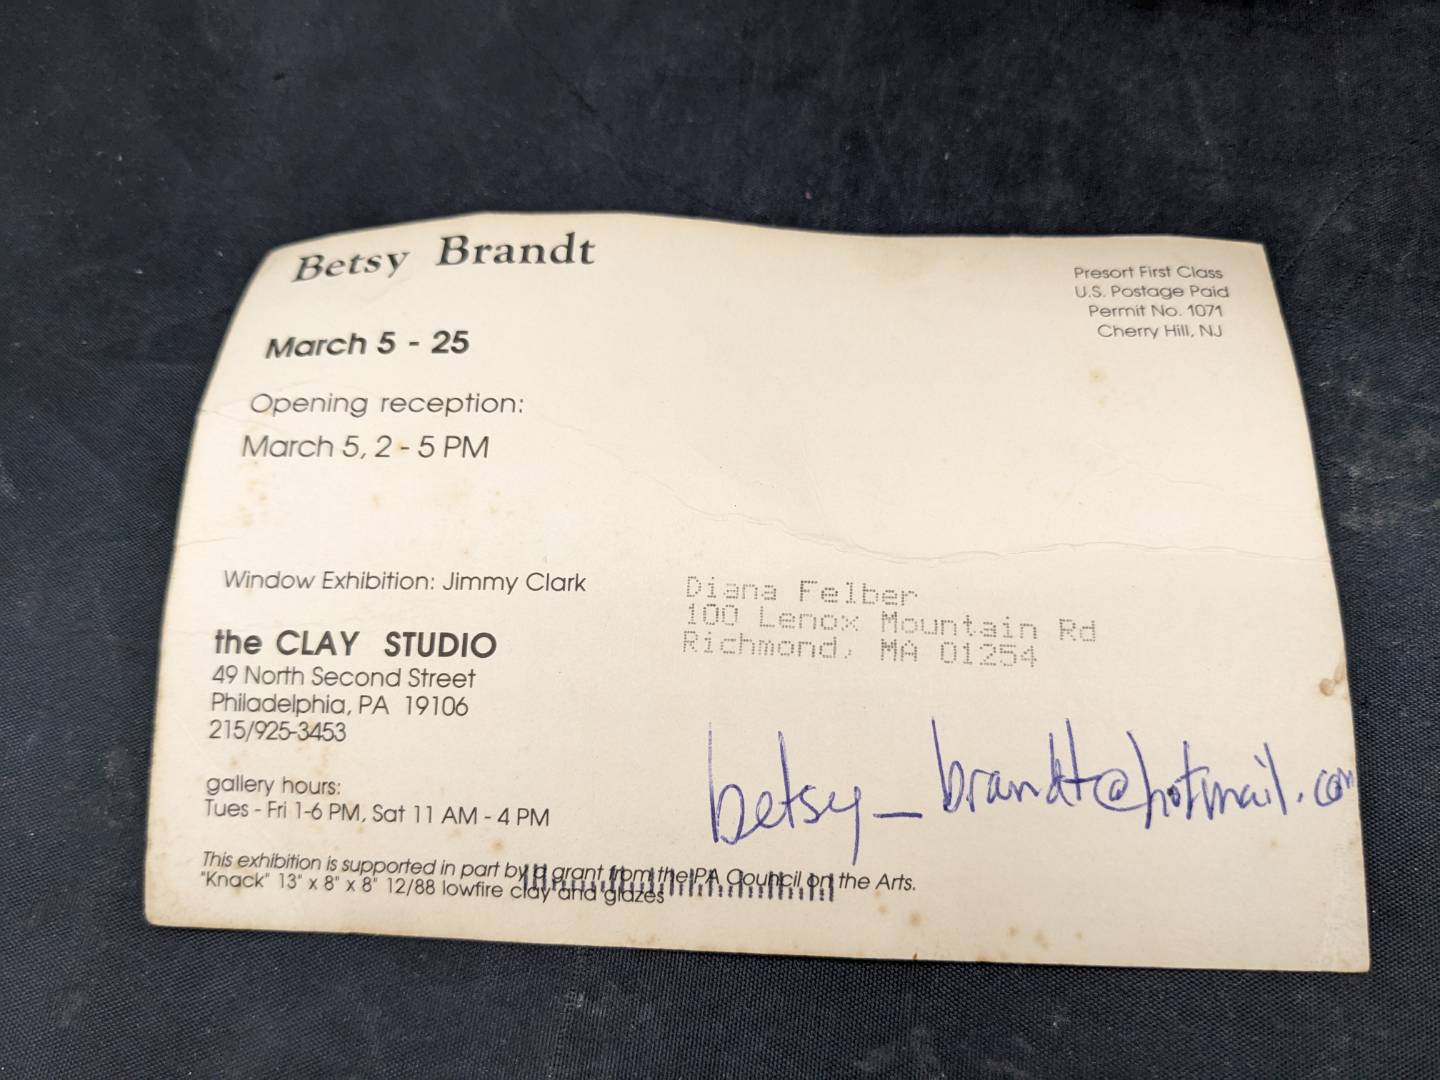 Betsy Brandt
March 5 - 25
Opening reception:
March 5, 2 - 5 PM
Presort First Class
U.S. Postage Paid
Permit No. 1071
Cherry Hill, NJ
Window Exhibition: Jimmy Clark
the CLAY STUDIO
49 North Second Street
Philadelphia, PA 19106
215/925-3453
gallery hours:
Tues - Fri 1-6 PM, Sat 11 AM - 4 PM
This exhibition is supported in part by a grant from the PA Council on the Arts.
"Knack" 13" x 8" x 8" 12/88 lowfire clay and glazes
Diana Felber
100 Lenox Mountain Rd
Richmond, MA 01254
betsy_brandt@hotmail.com